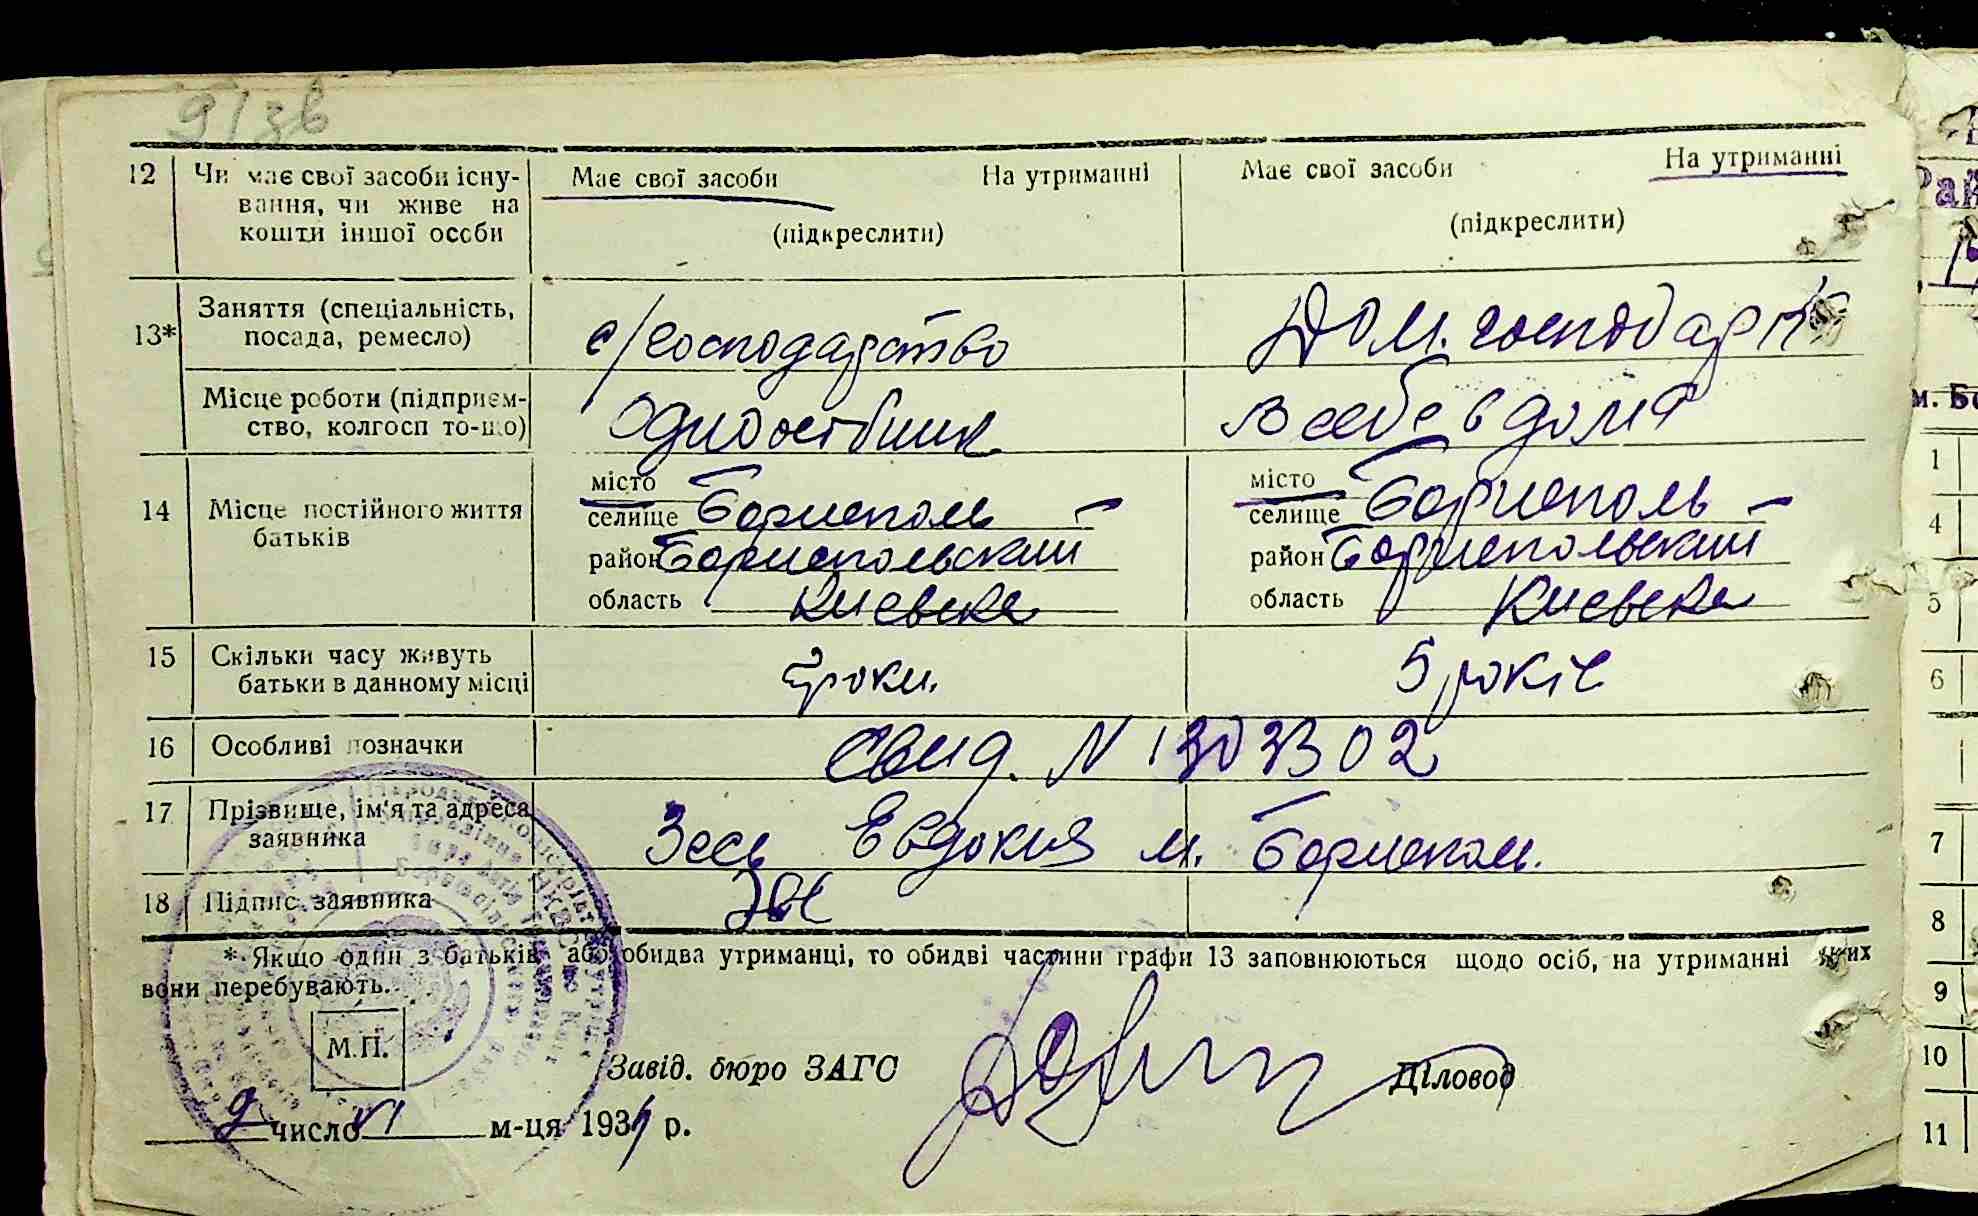 9/зв
12 Чи має свої засоби існу- Має свої засоби На утриманні Має свої засоби На утриманні
вання, чи живе на
кошти іншої особи (підкреслити) (підкреслити)
13* Заняття (спеціальність,
посада, ремесло) с/господарство Дом. господарка
Місце роботи (підприєм-
ство, колгосп то-що) Одноосібник в себе в дома
14 Місце постійного життя
батьків
місто місто
селище Бориспол селище Борисполь
район Бориспольский район Бориспольский
область Киевска область Киевска
15 Скільки часу живуть
батьки в данному місці роки. 5 років
16 Особливі позначки Свид. N 1303302
17 Прізвище, ім'я та адреса
заявника Евдокия м. Бориспол.
18 Підпис заявника
* Якщо один з батьків або обидва утриманці, то обидві частини графи 13 заповнюються щодо осіб, на утриманні яких
вони перебувають.
М.П.
Завід. бюро ЗАГС Діловод
9 число VI м-ця 193 р.
Рай
м. Бо
1
4
5
6
7
8
9
10
11